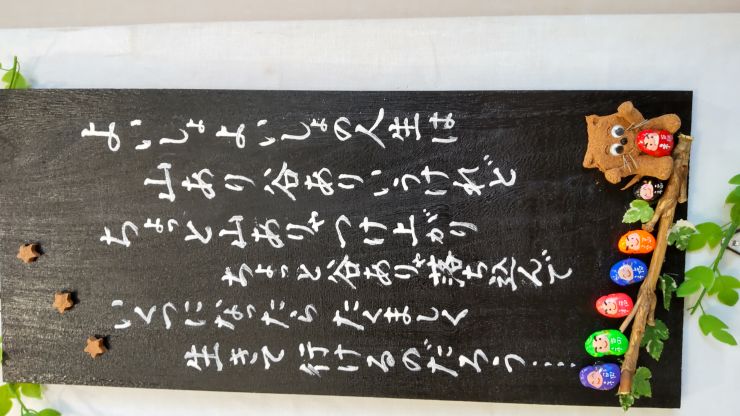 よいしょよいしょの人生は
山あり谷ありいうけれど
ちょっと山ありゃつけ上がり
ちょっと谷ありゃ落ち込んで
いくつになったらたくましく
生きて行けるのだろう....